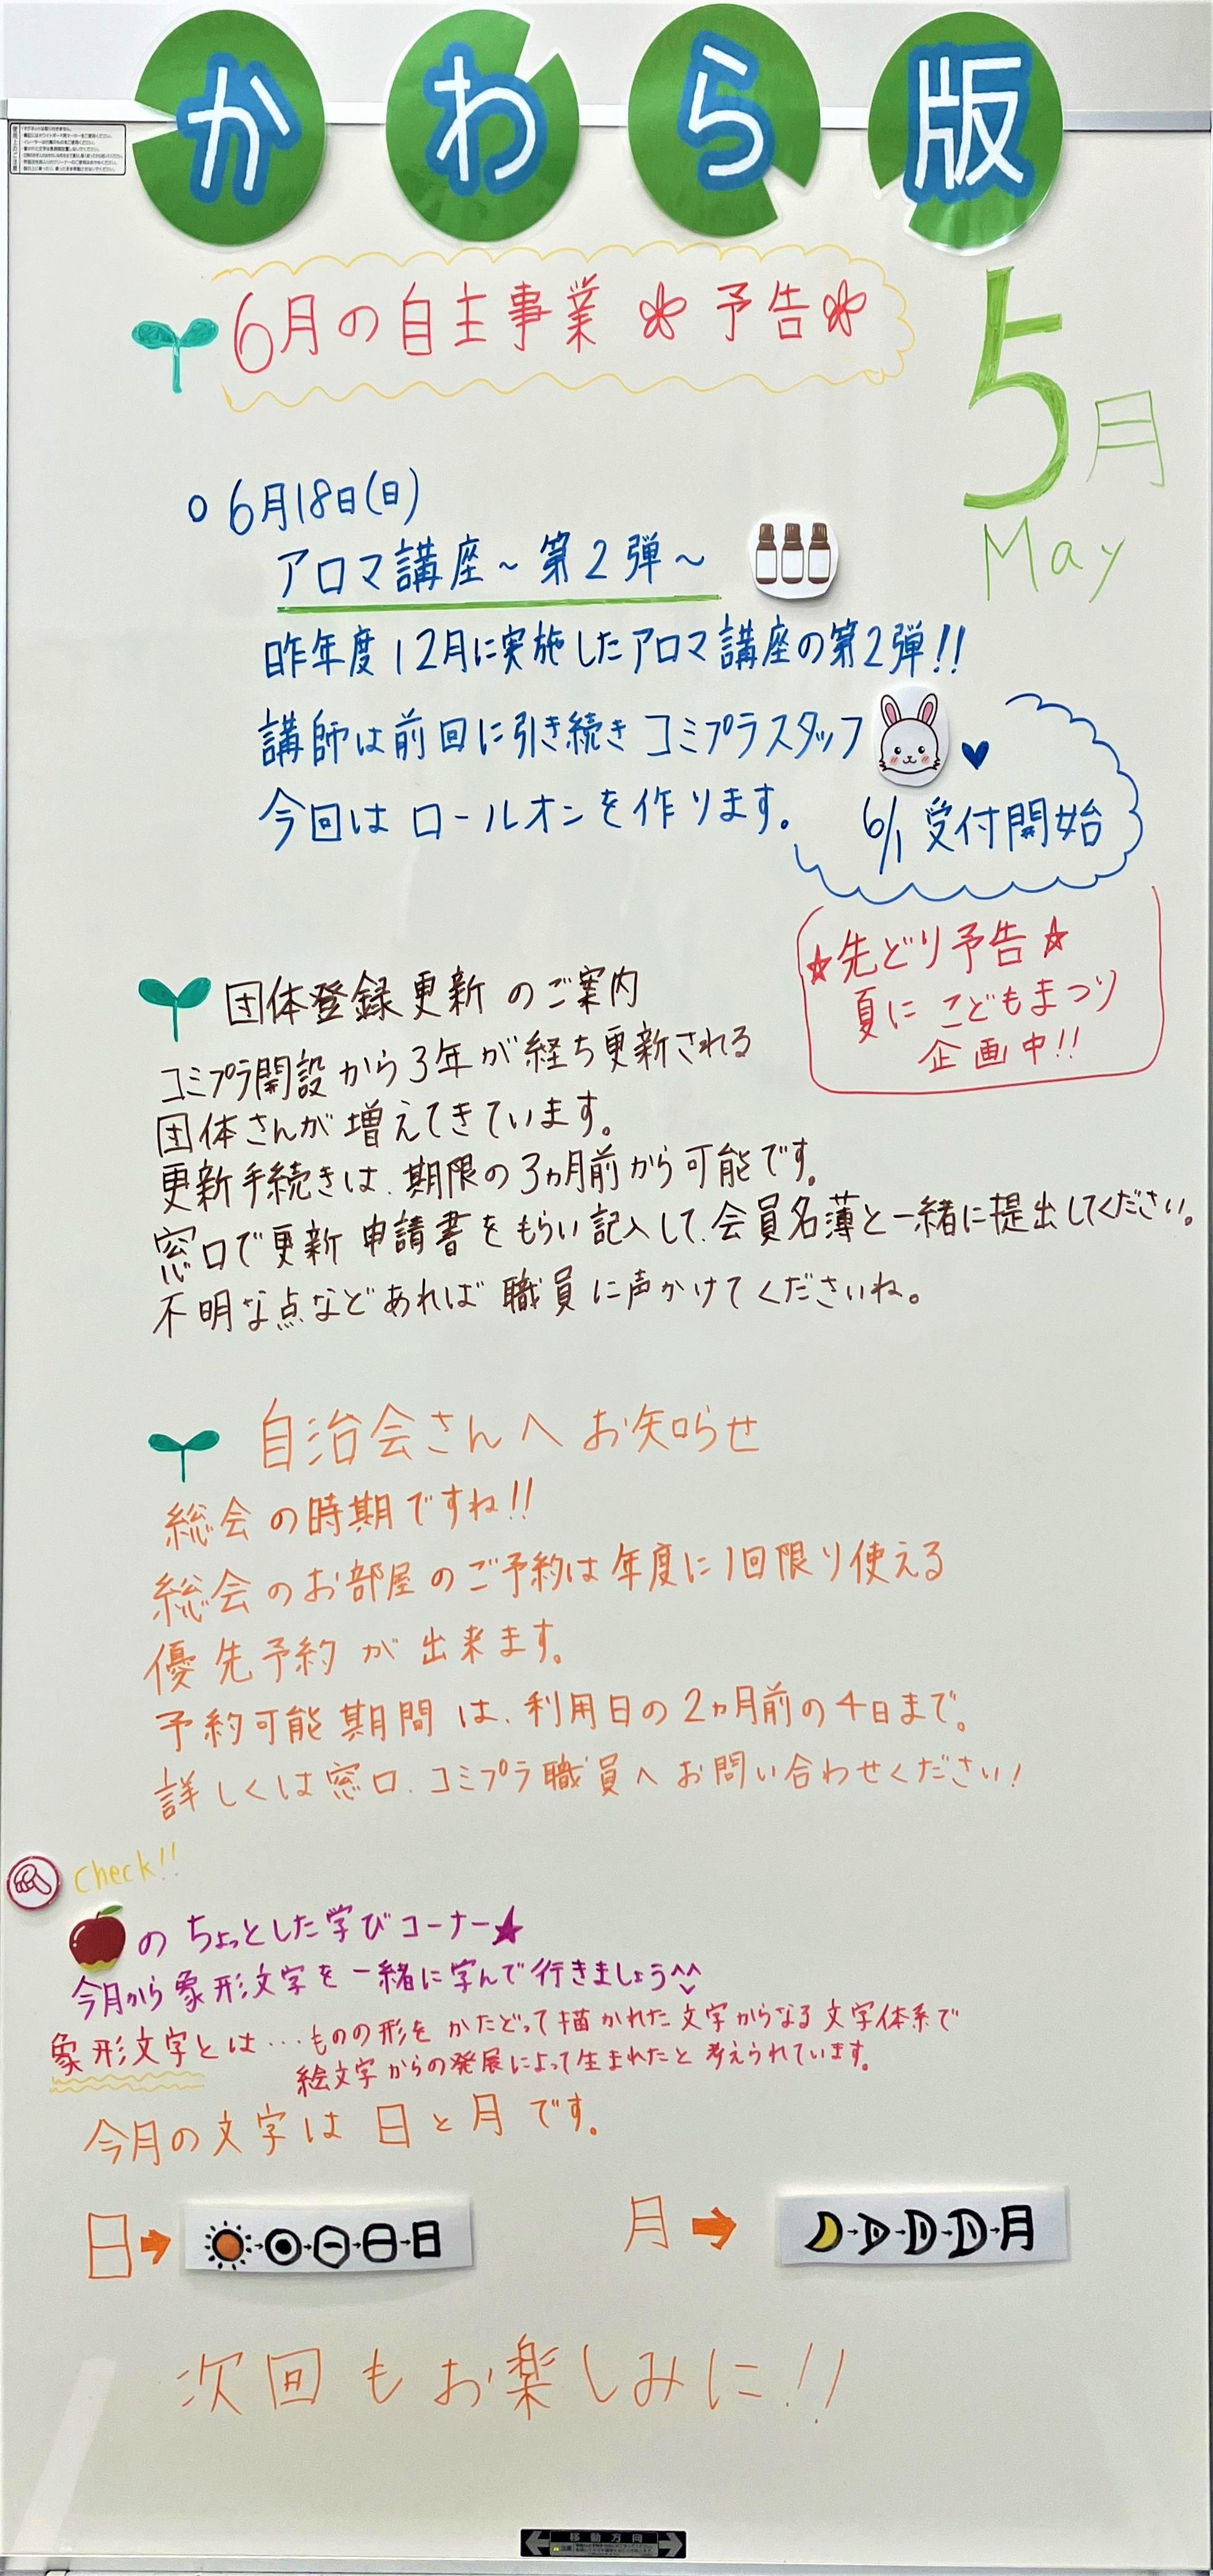 かわら版
6月の自主事業 予告
5月
May
○6月18日(日)
アロマ講座～第2弾～
昨年度12月に実施したアロマ講座の第2弾!!
講師は前回に引き続きコミプラスタッフ
今回はロールオンを作ります。
6/1 受付開始
☆先どり予告☆
夏にこどもまつり
企画中!!
団体登録更新のご案内
コミプラ開設から3年が経ち更新される
団体さんが増えてきています。
更新手続きは、期限の3ヵ月前から可能です。
窓口で更新申請書をもらい記入して、会員名薄と一緒に提出してください。
不明な点などあれば職員に声かけてくださいね。
自治会さんへお知らせ
総会の時期ですね!!
総会のお部屋のご予約は年度に1回限り使える
優先予約が出来ます。
予約可能期間は、利用日の2ヵ月前の4日まで。
詳しくは窓口、コミプラ職員へお問い合わせください!
check!!
のちょっとした学びコーナー★
今月から象形文字を一緒に学んで行きましょう^^
象形文字とは…ものの形をかたどって描かれた文字からなる文字体系で
絵文字からの発展によって生まれたと考えられています。
今月の文字は日と月です。
日→ 日
月→ 月
次回もお楽しみに!!
移動方向